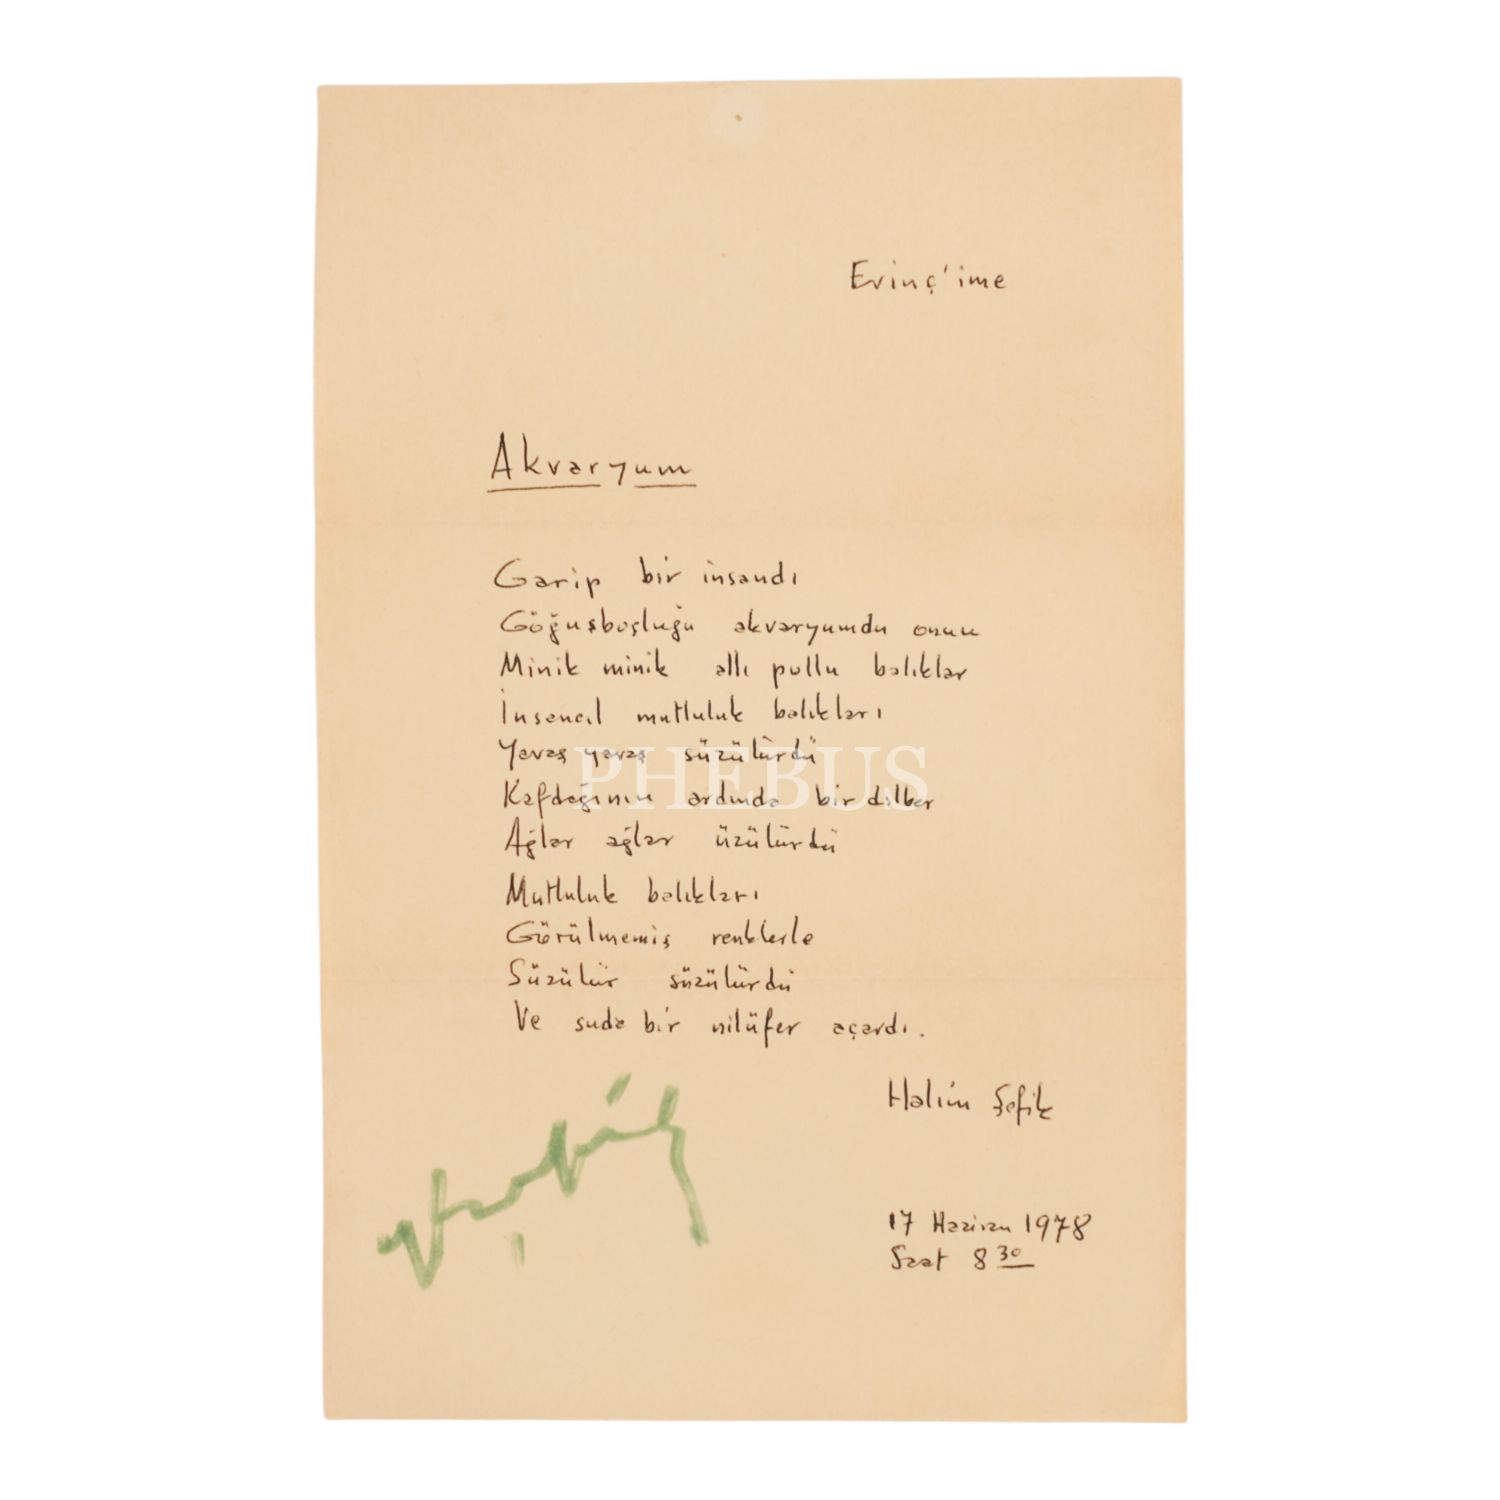 Evinç'ime
Akvaryum
Garip bir insandı
Göğüsboşluğu akvaryumdu onun
Minik minik allı pullu balıklar
İnsancıl mutluluk balıkları
Yavaş yavaş süzülürdü
Kafdağının ardında bir dilber
Ağlar ağlar üzülürdü
Mutluluk balıkları
Görülmemiş renklerle
Süzülür süzülürdü
Ve suda bir nilüfer açardı.
Halim Şefik
17 Haziran 1978
Saat 8 30
PHEBUS